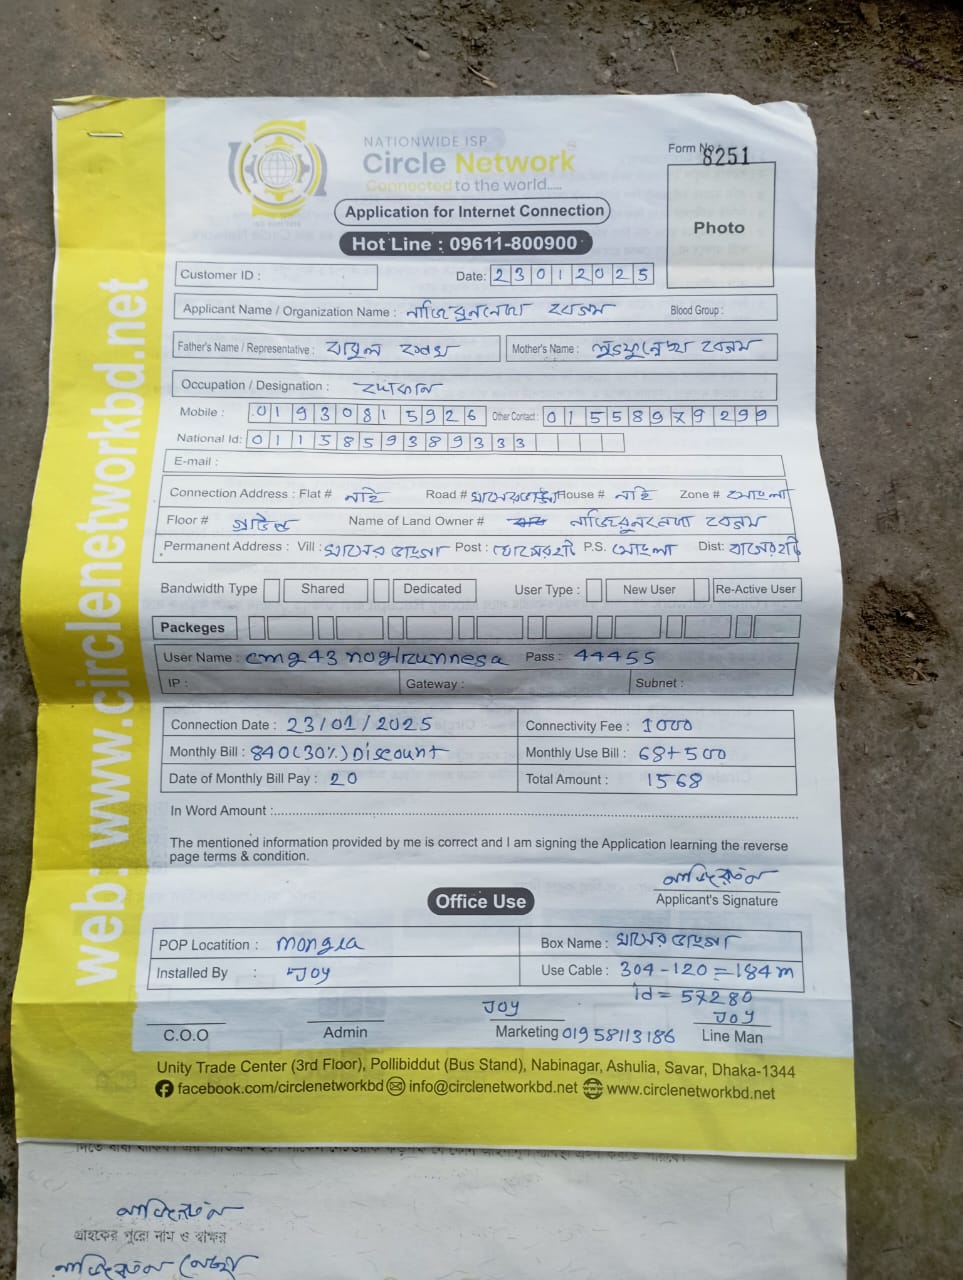 NATIONWIDE ISP
Circle Network
Connected to the world.....
Form No. 8251
Application for Internet Connection
Photo
Hot Line : 09611-800900
Customer ID :
Date: 23012025
Applicant Name / Organization Name : নাজিরুননেছা বেগম
Blood Group :
Father's Name / Representative : বাবুল শেখ
Mother's Name : বেগম
Occupation / Designation : দোকান
Mobile : 01930815926 Other Contact : 01558979299
National Id: 0115859389333
E-mail :
Connection Address : Flat # নাই Road # House # নাই Zone # মোংলা
Floor # Name of Land Owner # নাজিরুননেছা বেগম
Permanent Address : Vill : Post : P.S. মোংলা Dist: বাগেরহাট
Bandwidth Type Shared Dedicated User Type : New User Re-Active User
Packeges
User Name : Pass : 44455
IP : Gateway : Subnet :
Connection Date : 23/01/2025 Connectivity Fee : 1000
Monthly Bill : 840(30%) Discount Monthly Use Bill : 68+500
Date of Monthly Bill Pay : 20 Total Amount : 1568
In Word Amount :
The mentioned information provided by me is correct and I am signing the Application learning the reverse
page terms & condition.
Applicant's Signature
Office Use
POP Locatition : Mongla Box Name :
Installed By : Joy Use Cable : 304-120=184m
id= 57280
Joy Joy
C.O.O Admin Marketing 01958113186 Line Man
Unity Trade Center (3rd Floor), Pollibiddut (Bus Stand), Nabinagar, Ashulia, Savar, Dhaka-1344
facebook.com/circlenetworkbd info@circlenetworkbd.net www.circlenetworkbd.net
web: www.circlenetworkbd.net
গ্রাহকের পুরো নাম ও স্বাক্ষর